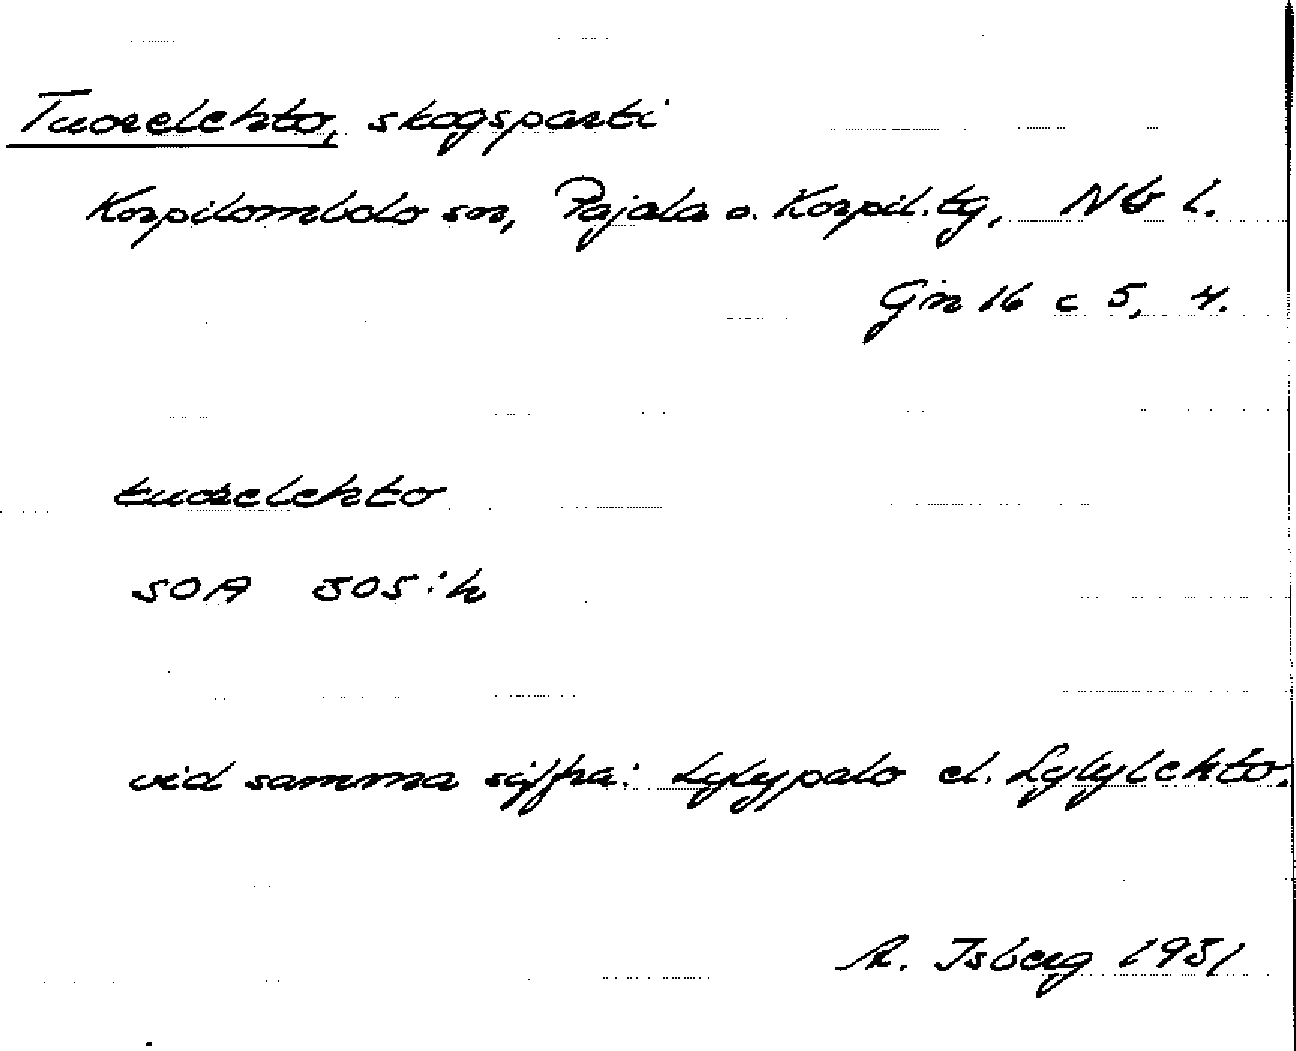 Tuorelehto, skogsparti
Korpilombolo sn, Pajala o. Korpil. tg, Nb l.
Gn 16 c 5, 4.
tuorelehto
SOA 505:h
vid samma siffra: Lylypalo el. Lylylehto.
R. Isberg 1931